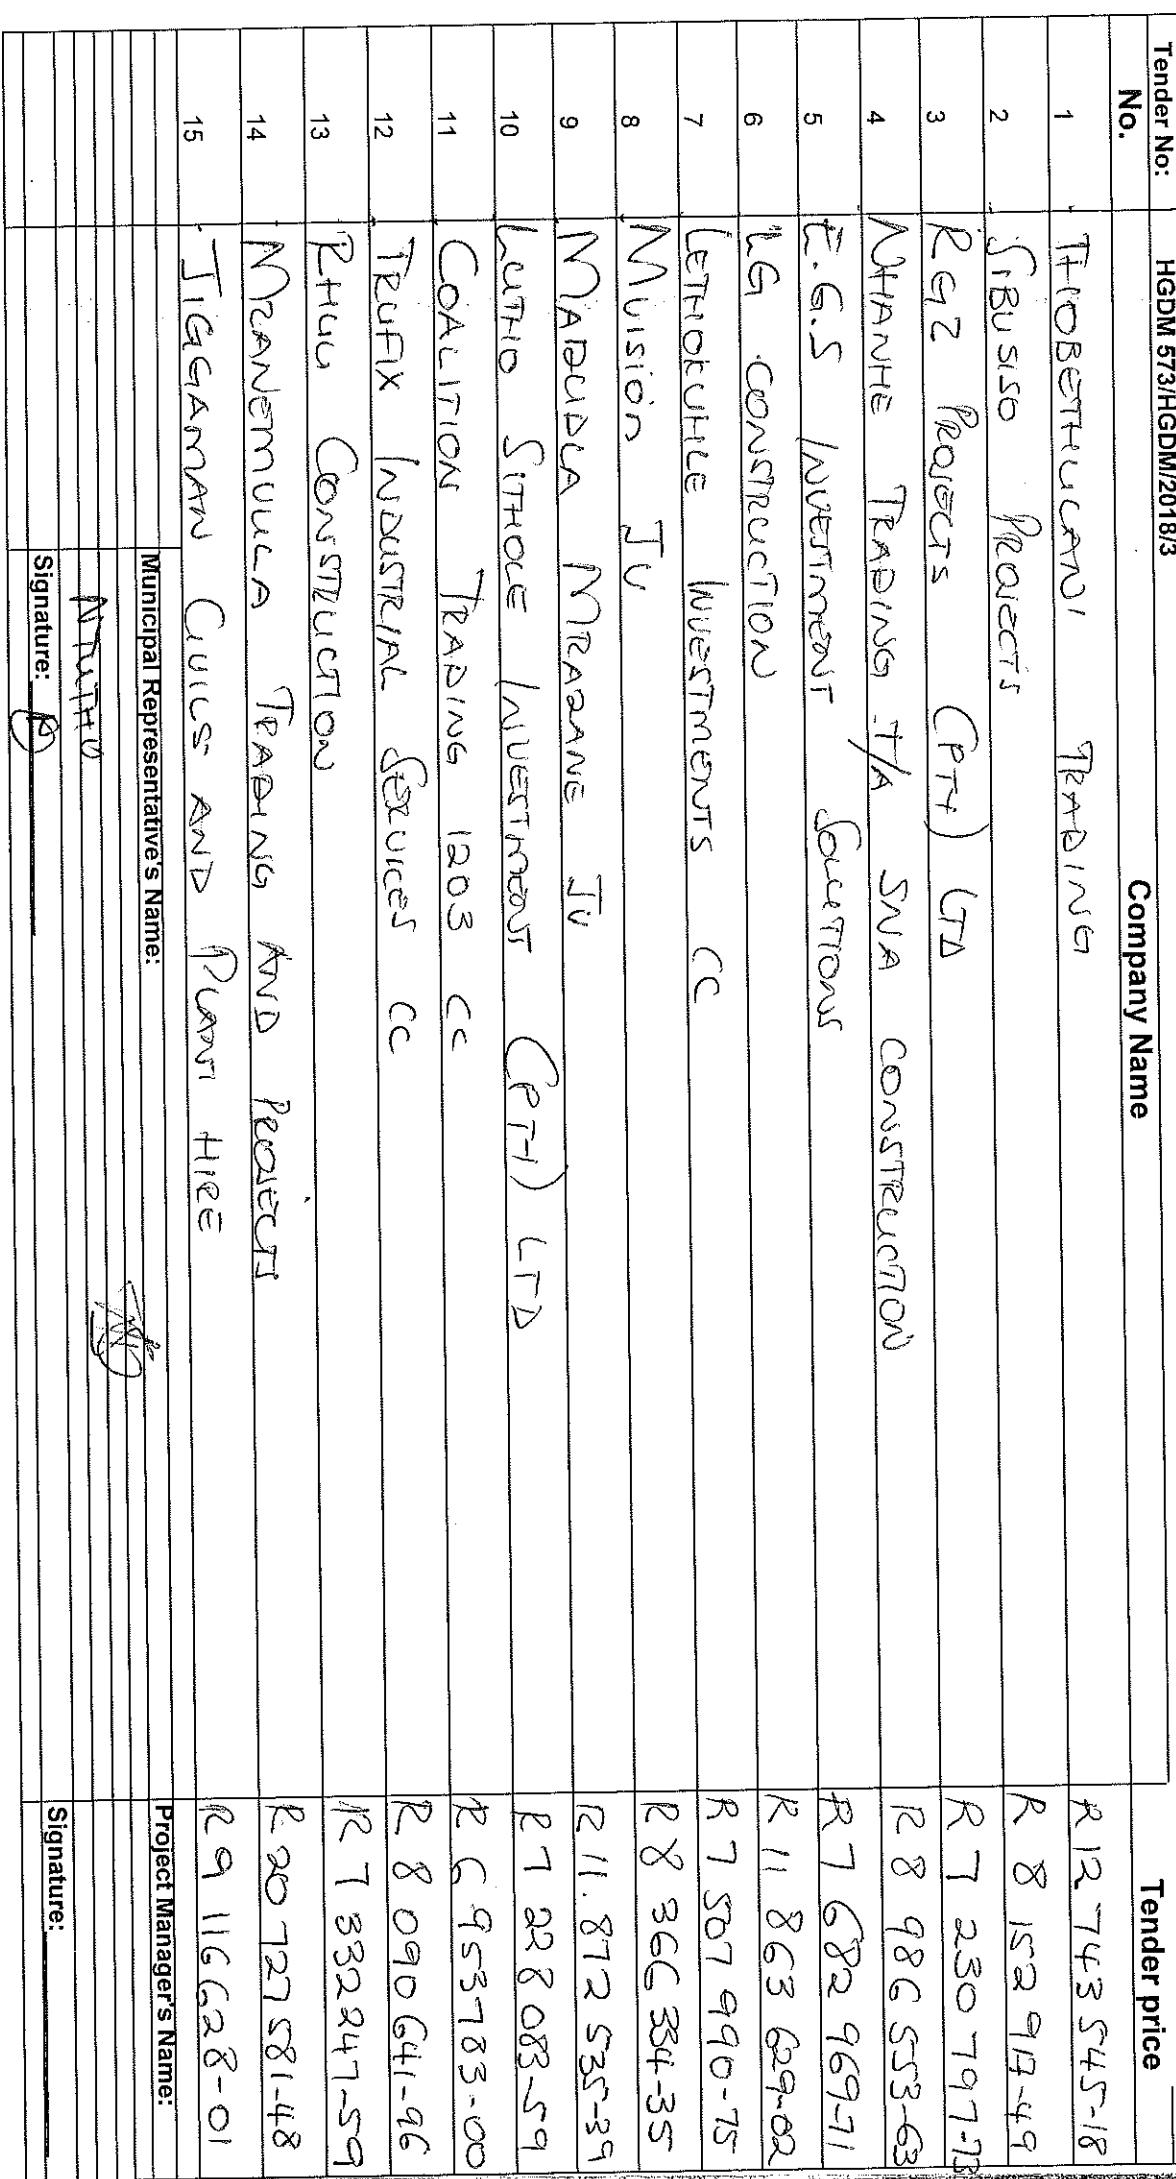 Tender No: HGDM 573/HGDM/2018/3
No. Company Name Tender price
1 THOBETHUCANI TRADING R 12 743 545-18
2 SIBUSISO PROJECTS R 8 152 917-49
3 RGZ PROJECTS (PTY) LTD R 7 230 797-73
4 NHANHE TRADING T/A SNA CONSTRUCTION R 8 986 553-63
5 E.G.S INVESTMENT SOLUTIONS R 7 682 969-71
6 LG CONSTRUCTION R 11 863 629-02
7 LETHOKUHLE INVESTMENTS CC R 7 507 990-75
8 MVISION JV R 8 366 334-35
9 MADUDLA MRADANE JV R 11.872 535-39
10 LUTHO SITHOLE INVESTMENT (PTY) LTD R 7 228 083-59
11 COALITION TRADING 1203 CC R 6 953783-00
12 TRUFIX INDUSTRIAL SERVICES CC R 8 090 641-96
13 RHUU CONSTRUCTION R 7 332 247-59
14 MZANEMVULA TRADING AND PROJECTS R 20 727 581-48
15 JIGGAMAN CIVILS AND PLANT HIRE R 9 116 628-01
Municipal Representative's Name: Project Manager's Name:
Signature: Signature: